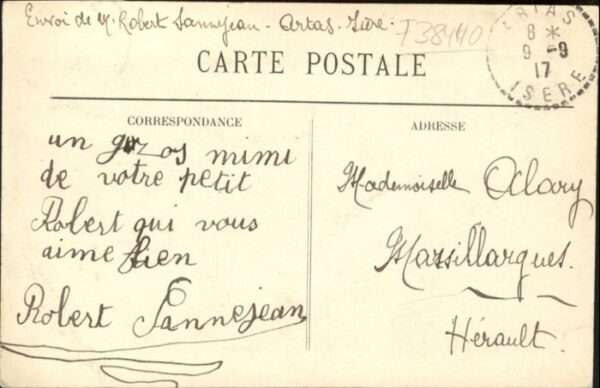 Envoi de M. Robert Jannejean - Artas - Isère.
T38440
ARTAS
8 *
9 - 9
17
ISERE
CARTE POSTALE
CORRESPONDANCE
un gozos mimi
de votre petit
Robert qui vous
aime bien
Robert Jannejean
ADRESSE
Mademoiselle Alary
Massillargues.
Hérault.